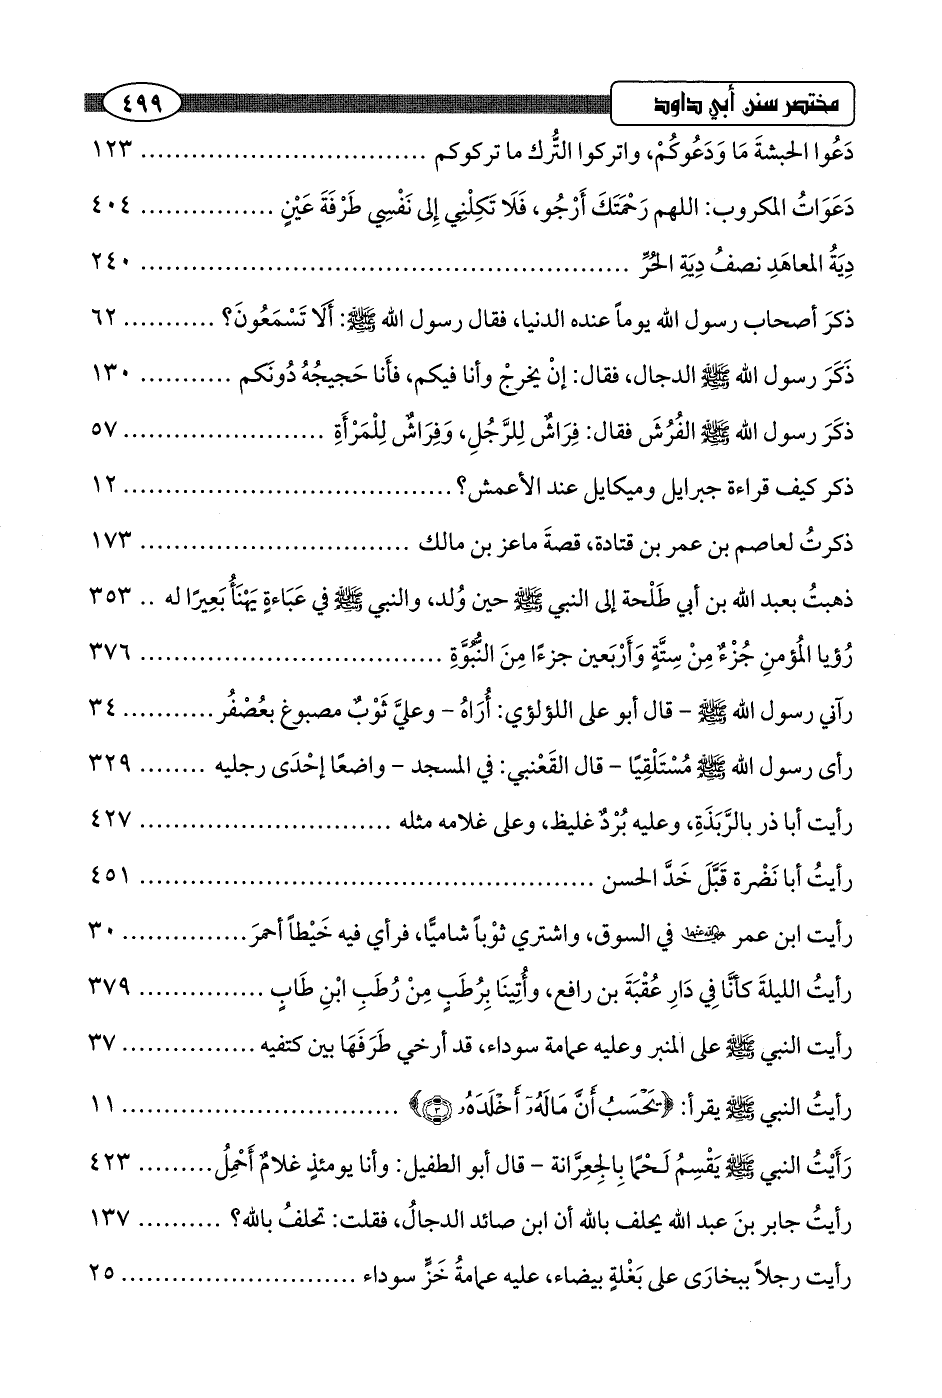 مختصر سنن أبي داود ٤٩٩
دَعُوا الحبشةَ مَا وَدَعُوكُمْ، واتركوا التُّرك ما تركوكم ................................ ١٢٣
دَعَوَاتُ المكروب: اللهم رَحْمَتَكَ أَرْجُو، فَلَا تَكِلْنِي إلى نَفْسِي طَرْفَةَ عَيْنٍ ............... ٤٠٤
دِيَةُ المعاهَدِ نصفُ دِيَةِ الحُرِّ ...................................................... ٢٤٠
ذكرَ أصحاب رسول الله يوماً عنده الدنيا، فقال رسول الله ﷺ: أَلَا تَسْمَعُونَ؟ .......... ٦٢
ذَكَرَ رسول الله ﷺ الدجال، فقال: إنْ يخرجْ وأنا فيكم، فأَنا حَجيجُهُ دُونَكم .......... ١٣٠
ذكرَ رسول الله ﷺ الفُرُشَ فقال: فِرَاشٌ لِلرَّجُلِ، وَفِرَاشٌ لِلْمَرْأَةِ ....................... ٥٧
ذكر كيف قراءة جبرايل وميكايل عند الأعمش؟ ..................................... ١٢
ذكرتُ لعاصم بن عمر بن قتادة، قصةَ ماعز بن مالك .............................. ١٧٣
ذهبتُ بعبد الله بن أبي طَلْحة إلى النبي ﷺ حين وُلد، والنبي ﷺ في عَبَاءةٍ يَهْنَأُ بَعِيرًا له .. ٣٥٣
رُؤيا المؤمنِ جُزْءٌ مِنْ سِتَّةٍ وَأَرْبَعين جزءًا مِنَ النُّبُوَّةِ ................................. ٣٧٦
رآني رسول الله ﷺ - قال أبو علي اللؤلؤي: أُرَاهُ - وعليَّ ثَوْبٌ مصبوغ بعُصْفُر ........... ٣٤
رأى رسول الله ﷺ مُسْتَلْقِيًا - قال القَعْنبي: في المسجد - واضعًا إحْدَى رجليه ........ ٣٢٩
رأيت أبا ذر بالرَّبَذَةِ، وعليه بُرْدٌ غليظ، وعلى غلامه مثله ............................ ٤٢٧
رأيتُ أبا نَضْرة قَبَّلَ خَدَّ الحسن .................................................. ٤٥١
رأيت ابن عمر رضي الله عنهما في السوق، واشتري ثوْباً شاميًّا، فرأي فيه خَيْطاً أحمرَ .............. ٣٠
رأيتُ الليلةَ كأنَّا فِي دَارِ عُقْبَةَ بن رافع، وأُتِينَا بِرُطَبٍ مِنْ رُطَبِ ابْنِ طَابٍ .............. ٣٧٩
رأيت النبي ﷺ على المنبر وعليه عمامة سوداء، قد أرخي طَرَفَهَا بين كتفيه ............... ٣٧
رأيتُ النبي ﷺ يقرأ: ﴿يَحْسَبُ أَنَّ مَالَهُۥٓ أَخْلَدَهُۥ ۝٣﴾ ............................... ١١
رَأَيْتُ النبي ﷺ يَقْسِمُ لَحْمًا بِالجعِرَّانة - قال أبو الطفيل: وأنا يومئذٍ غلامٌ أَحْمِلُ ......... ٤٢٣
رأيتُ جابر بنَ عبد الله يحلف بالله أن ابن صائد الدجالُ، فقلت: تحلفُ بالله؟ .......... ١٣٧
رأيت رجلاً ببخارَى على بَغْلةٍ بيضاء، عليه عمامةُ خَزٍّ سوداء ........................... ٢٥